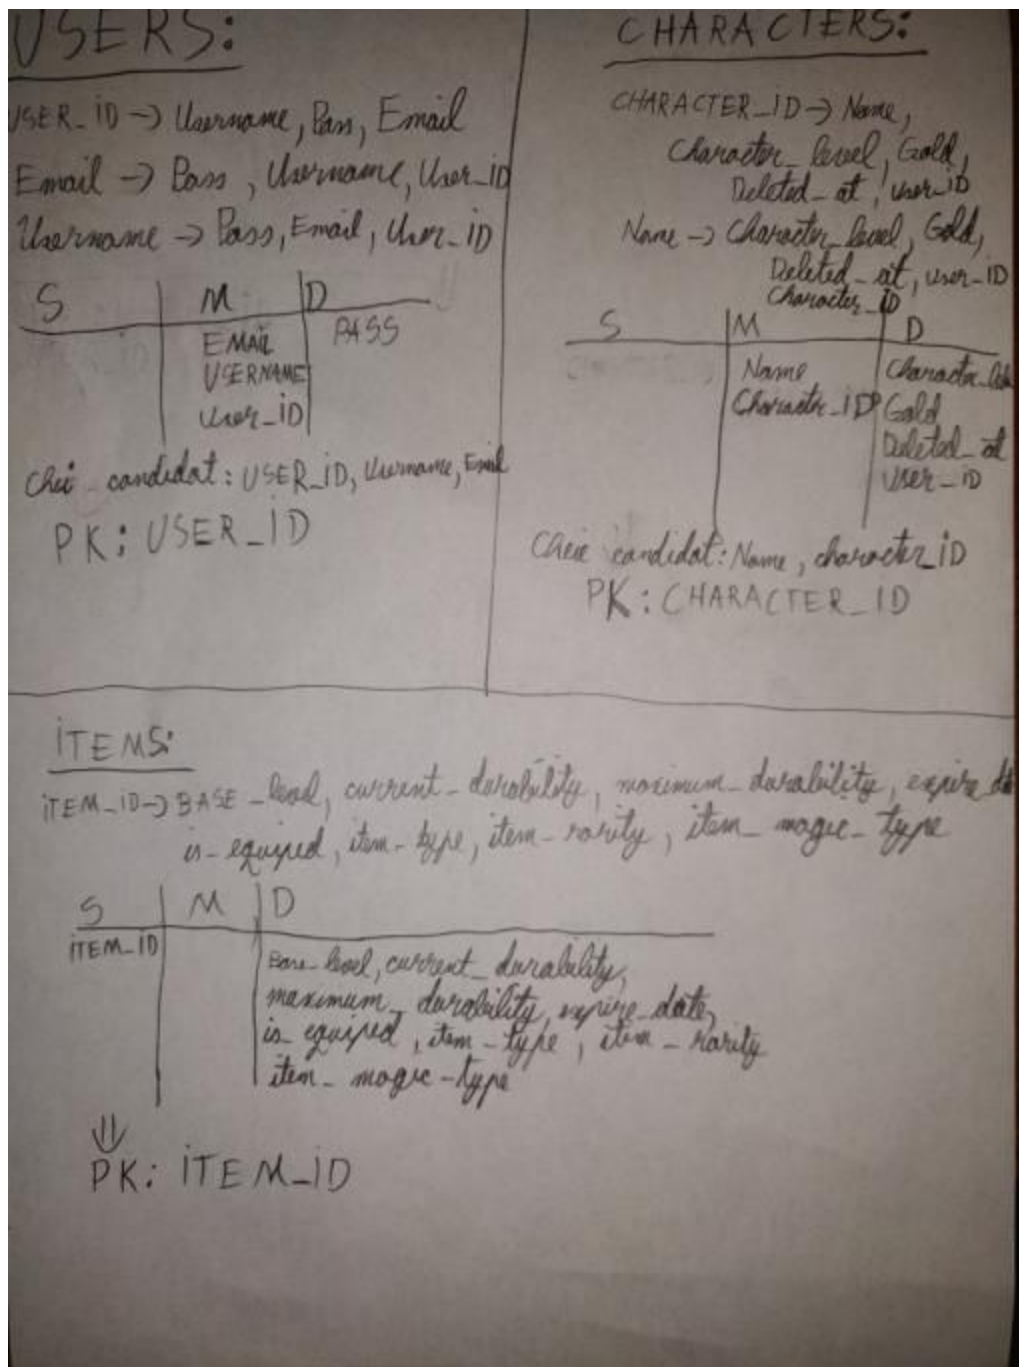 USERS:
USER_iD -> Username, Pass, Email
Email -> Pass, Username, User_iD
Username -> Pass, Email, User_iD
S M D
EMAIL PASS
USERNAME
User_iD
Chei candidat: USER_iD, Username, Email
PK: USER_ID
CHARACTERS:
CHARACTER_iD -> Name,
Character_level, Gold,
Deleted_at, user_iD
Name -> Character_level, Gold,
Deleted_at, user_iD
Character_iD
S M D
Name
Character_iD
Gold
Deleted_at
User_iD
Cheie candidat: Name, character_iD
PK: CHARACTER_ID
iTEMS:
iTEM_iD -> BASE_level, current_durability, maximum_durability,
is_equiped, item_type, item_rarity, item_magic_type
S M D
iTEM_iD
Base_level, current_durability,
maximum_durability, expire_date,
is_equiped, item_type, item_rarity
item_magic_type
⇓
PK: iTEM_iD